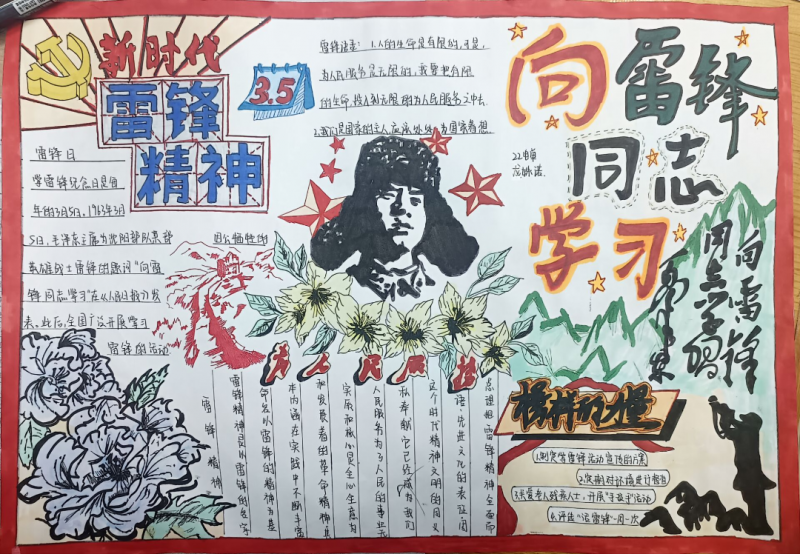 新时代
雷锋
精神
3.5
雷锋语录：1.人的生命是有限的，可是，
为人民服务是无限的，我要把有限
的生命，投入到无限的为人民服务之中去
2.我们是国家的主人，应该处处为国家着想
向雷锋
同志
学习
22电商
雷锋日
学雷锋纪念日是每
年的3月5日，1963年3月
5日，毛泽东主席为沈阳部队
英雄战士雷锋的题词“向雷
锋同志学习”在《人民日报》发
表，此后，全国广泛开展学习
雷锋的活动
因公牺牲
向雷锋
同志学习
毛泽东
为人民服务
雷锋精神
雷锋精神是以雷锋的名字
命名以雷锋的精神为基
本内涵在实践中不断丰富
和发展着的革命精神其
实质和核心是全心全意为
人民服务为了人民的事业无
私奉献它已经成为我们
这个时代精神文明的同义
语、先进文化的表征
周恩来
雷锋精神全面
榜样的力量
1.制定学雷锋活动宣传的方案
2.定期对环境进行
3.关爱老人残疾人士，开展“手拉手”活动
4.评选“活雷锋”一周一次